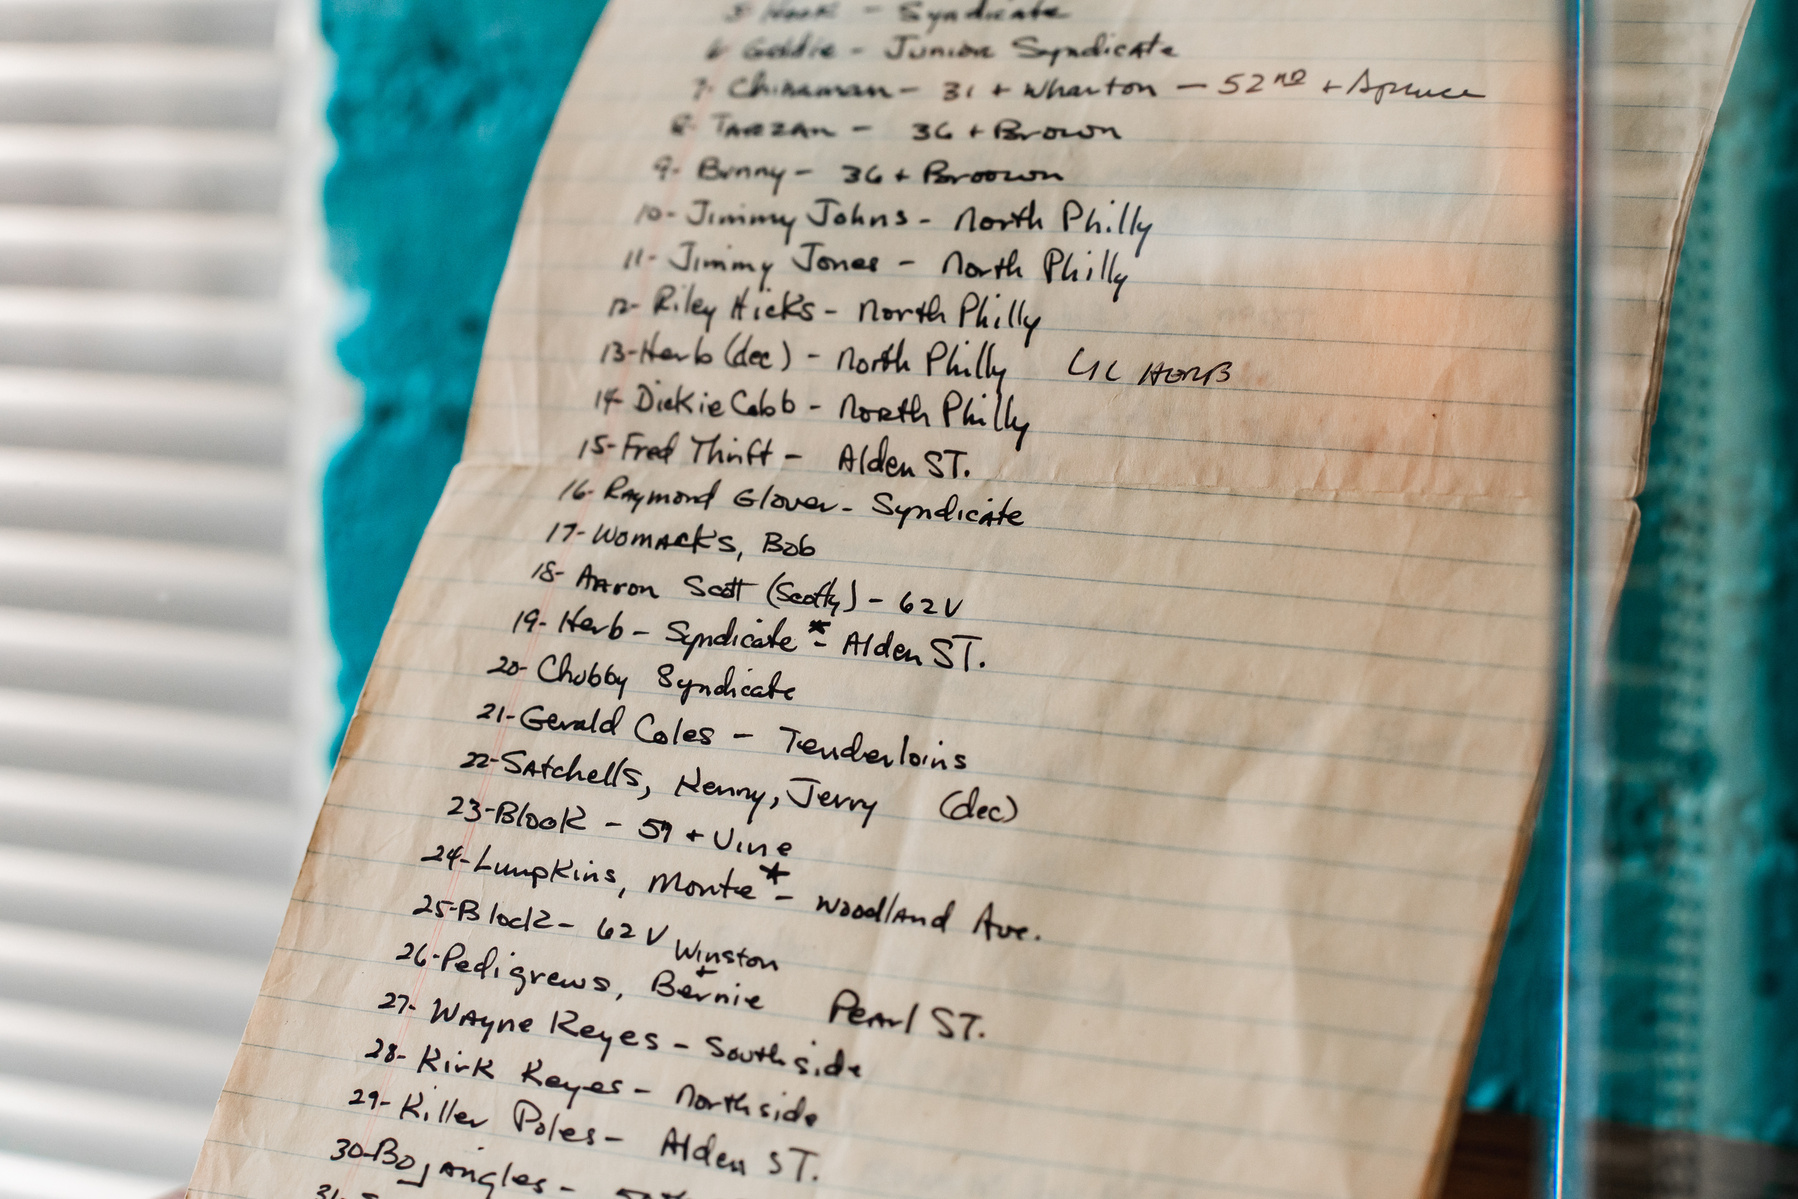 5 Hook - Syndicate
6 Goldie - Junior Syndicate
7- Chinaman - 31 + Wharton - 52ND + Spruce
8- TARZAN - 36 + Brown
9- Bunny - 36 + Broown
10- Jimmy Johns - North Philly
11- Jimmy Jones - North Philly
12- Riley Hicks - North Philly
13- Herb (dec) - North Philly LIL HERB
14- Dickie Cobb - North Philly
15- Fred Thrift - Alden ST.
16- Raymond Glover - Syndicate
17- Womack's, Bob
18- Aaron Scott (Scotty) - 62 V
19- Herb - Syndicate * - Alden ST.
20- Chubby Syndicate
21- Gerald Coles - Tenderloins
22- Satchells, Kenny, Jerry (dec)
23- Blook - 59 + Vine
24- Lumpkins, Monte * - Woodland Ave.
25- Block - 62 V
26- Pedigrews, Winston + Bernie Pearl ST.
27- Wayne Keyes - South side
28- Kirk Keyes - North side
29- Killer Poles - Alden ST.
30- Bojangles -
31-